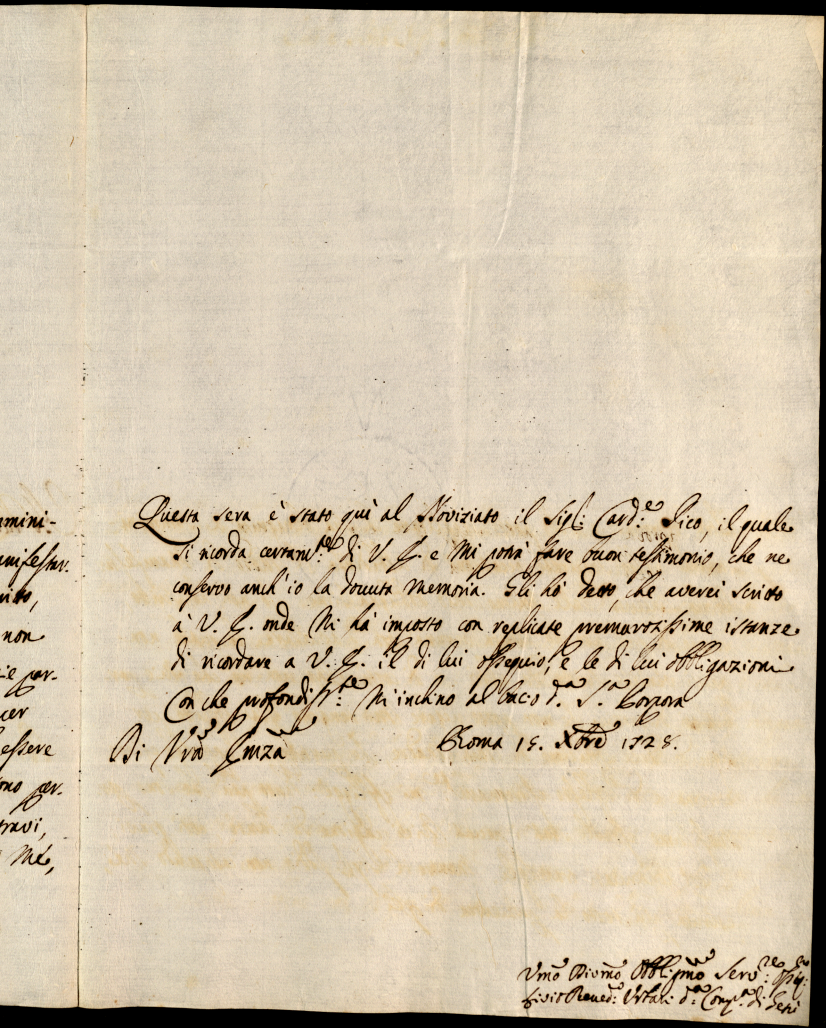 mmini-
anifestar.
rito,
non
ie par-
per
essere
ono per-
travi,
Mè,
Questa sera è stato quì al Noviziato il Sig.r Card.e Pico, il quale
si ricorda certam.te di V. E. e mi potrà fare buon testimonio, che ne
conservo anch'io la dovuta memoria. Gli hò detto, che averei scritto
à V. E. onde Mi hà imposto con replicate premurosissime istanze
di ricordare a V. E. il di lui ossequio, e le di lui obbligazioni
Con che profondiss.te M'inchino al bacio d.a S.a Porpora
Di Vrã Emza
Roma 15. Xbre 1728.
Vmo Divmo Obbligmo Serv.re osseq.
d.a Comp.a di Gesù